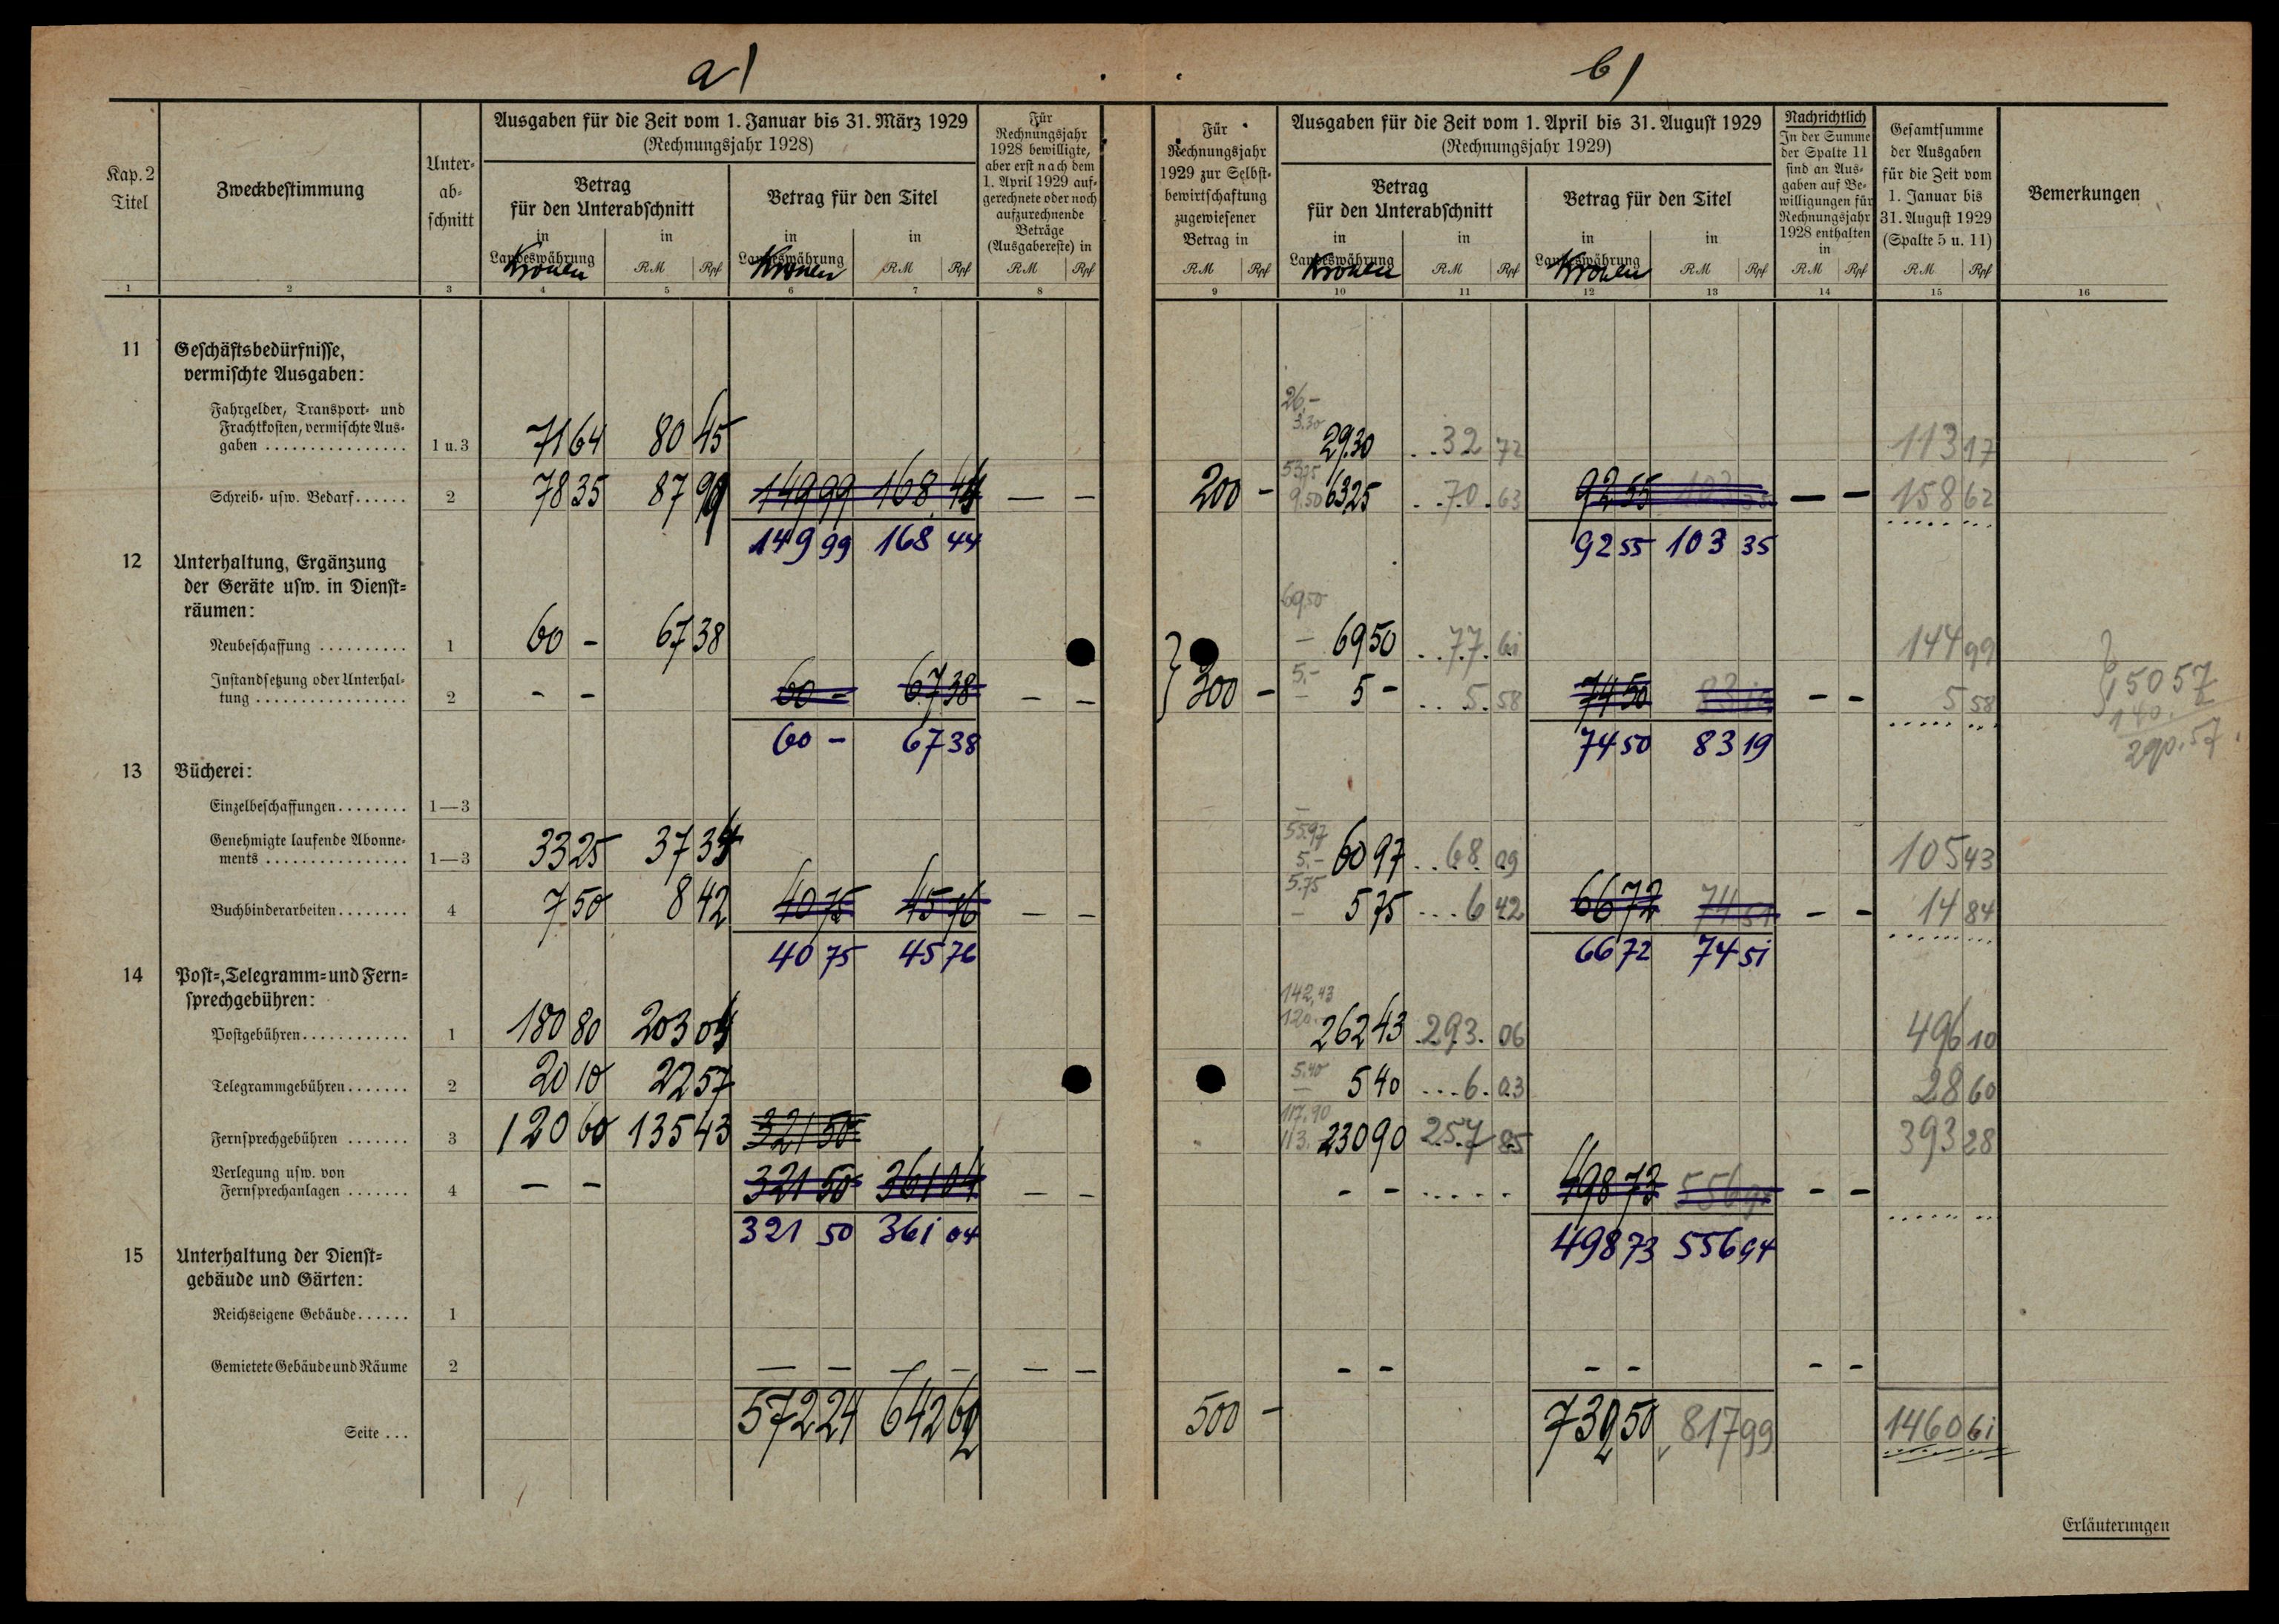 a) b)
Kap. 2 Titel | Zweckbestimmung | Unter-ab-schnitt | Ausgaben für die Zeit vom 1. Januar bis 31. März 1929 (Rechnungsjahr 1928) | Für Rechnungsjahr 1928 bewilligte, aber erst nach dem 1. April 1929 aufgerechnete oder noch aufzurechnende Beträge (Ausgabereste) in RM Rpf
Betrag für den Unterabschnitt | Betrag für den Titel
in Landeswährung Kronen | in RM Rpf | in Landeswährung Kronen | in RM Rpf
Für Rechnungsjahr 1929 zur Selbst-bewirtschaftung zugewiesener Betrag in RM Rpf | Ausgaben für die Zeit vom 1. April bis 31. August 1929 (Rechnungsjahr 1929) | Nachrichtlich In der Summe der Spalte 11 sind an Aus-gaben auf Be-willigungen für Rechnungsjahr 1928 enthalten in RM Rpf | Gesamtsumme der Ausgaben für die Zeit vom 1. Januar bis 31. August 1929 (Spalte 5 u. 11) RM Rpf | Bemerkungen
Betrag für den Unterabschnitt | Betrag für den Titel
in Landeswährung Kronen | in RM Rpf | in Landeswährung Kronen | in RM Rpf
1 2 3 4 5 6 7 8 9 10 11 12 13 14 15 16
11 Geschäftsbedürfnisse,
vermischte Ausgaben:
Fahrgelder, Transport- und 26.-
Frachtkosten, vermischte Aus- 3.30
gaben ................ 1 u. 3 71 64 80 45 29.30 32 72 113 17
53.75
Schreib- usw. Bedarf ...... 2 78 35 87 99 149 99 168 44 — — 200 - 9.50 63 25 70 63 92 55 103 35 — — 158 62
149 99 168 44 92 55 103 35
12 Unterhaltung, Ergänzung
der Geräte usw. in Dienst-
räumen: 69.50
Neubeschaffung .......... 1 60 - 67 38 - 69 50 77 61 144 99
Instandsetzung oder Unterhal- 5.- 150 57
tung ................. 2 - - 60 - 67 38 — — 300 - - 5 - 5 58 74 50 83 19 - - 5 58 140.
60 - 67 38 74 50 83 19 290.57
13 Bücherei:
Einzelbeschaffungen ........ 1—3 -
Genehmigte laufende Abonne- 55.97
ments ................ 1—3 33 25 37 34 5.- 60 97 68 09 105 43
5.75
Buchbinderarbeiten ........ 4 7 50 8 42 40 75 45 76 — — - 5 75 6 42 66 72 74 51 - - 14 84
40 75 45 76 66 72 74 51
14 Post-, Telegramm- und Fern-
sprechgebühren: 142,43
Postgebühren ............ 1 180 80 203 04 120.- 262 43 293 06 496 10
Telegrammgebühren ....... 2 20 10 22 57 5.40 - 5 40 6 03 28 60
117.90
Fernsprechgebühren ....... 3 120 60 135 43 321 50 113. 230 90 257 85 393 28
Verlegung usw. von
Fernsprechanlagen ....... 4 — — 321 50 361 04 — — - - 498 73 556 94 - -
321 50 361 04 498 73 556 94
15 Unterhaltung der Dienst-
gebäude und Gärten:
Reichseigene Gebäude ...... 1
Gemietete Gebäude und Räume 2 — — — — — — - - - - - -
Seite ... 572 24 642 62 500 - 732 50 817 99 1460 61
Erläuterungen